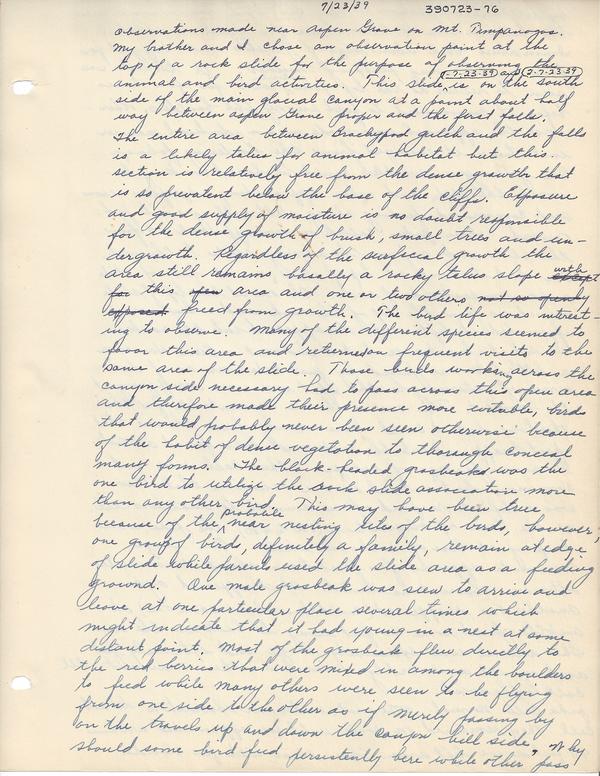 7/23/39
390723-76
Observations made near Aspen Grove on Mt. Timpanogos.
My brother and I chose an observation point at the
top of a rock slide for the purpose of observing the
1-7-23-39 and 2-7-23-39
animal and bird activities. This slide is on the south
side of the main glacial canyon at a point about half
way between Aspen Grove proper and the first falls.
The entire area between Brachypod gulch and the falls
is a likely talus for animal habitat but this
section is relatively free from the dense growth that
is so prevalent below the base of the cliffs. Exposure
and good supply of moisture is no doubt responsible
for the dense growth of brush, small trees and un-
dergrowth. Regardless of the surfacial growth the
area still remains basally a rocky talus slope with except
for this open area and one or two others not so openly
exposed freed from growth. The bird life was interest-
ing to observe. Many of the different species seemed to
favor this area and return on frequent visits to the
same area of the slide. Those birds working across the
canyon side necessary had to pass across this open area
and therefore made their presence more evitable, birds
that would probably never been seen otherwise because
of the habit of dense vegetation to thorough conceal
many forms. The black-headed grosbeaks was the
one bird to utilize the rock slide association more
than any other bird. This may have been true,
because of the probable near nesting sites of the birds, however;
one group of birds, definitely a family, remain at edge
of slide while parents used the slide area as a feeding
ground. One male grosbeak was seen to arrive and
leave at one particular place several times which
might indicate that it had young in a nest at some
distant point. Most of the grosbeak flew directly to
the red berries that were mixed in among the boulders
to feed while many others were seen to be flying
from one side to the other as if merily passing by
on the travels up and down the canyon hill side. Why
should some bird feed persistently here while other pass